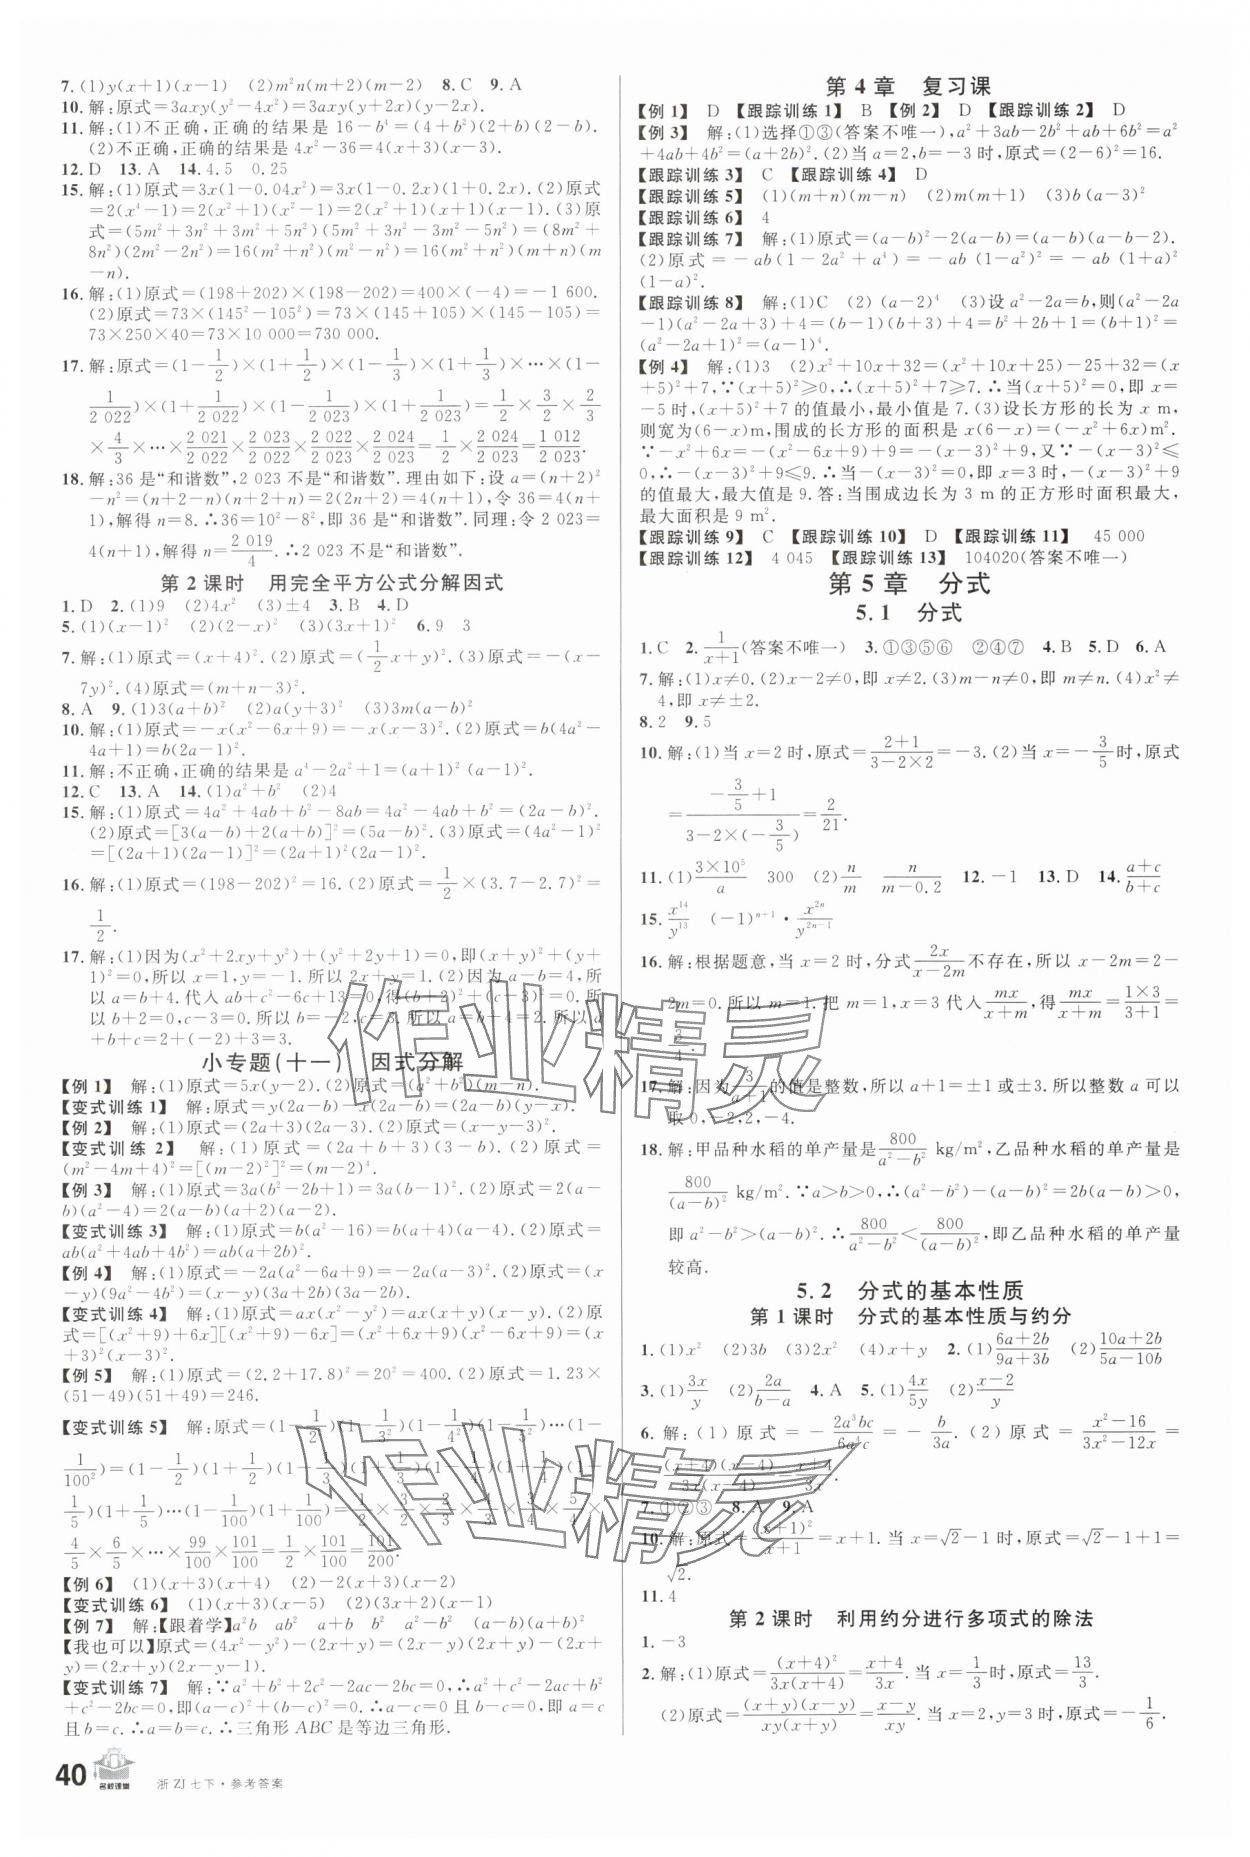 7. (1)y(x+1)(x-1) (2)m²n(m+2)(m-2) 8. C 9. A
10. 解:原式=3axy(y²-4x²)=3axy(y+2x)(y-2x).
11. 解:(1)不正确,正确的结果是 16-b⁴=(4+b²)(2+b)(2-b).
(2)不正确,正确的结果是 4x²-36=4(x+3)(x-3).
12. D 13. A 14. 4.5 0.25
15. 解:(1)原式=3x(1-0.04x²)=3x(1-0.2x)(1+0.2x). (2)原式
=2(x⁴-1)=2(x²+1)(x²-1)=2(x²+1)(x+1)(x-1). (3)原
式=(5m²+3n²+3m²+5n²)(5m²+3n²-3m²-5n²)=(8m²+
8n²)(2m²-2n²)=16(m²+n²)(m²-n²)=16(m²+n²)(m+n)(m
-n).
16. 解:(1)原式=(198+202)×(198-202)=400×(-4)=-1 600.
(2)原式=73×(145²-105²)=73×(145+105)×(145-105)=
73×250×40=73×10 000=730 000.
17. 解:原式=(1-1/2)×(1+1/2)×(1-1/3)×(1+1/3)×…×(1-
1/2 022)×(1+1/2 022)×(1-1/2 023)×(1+1/2 023)=1/2×3/2×2/3
×4/3×…×2 021/2 022×2 023/2 022×2 022/2 023×2 024/2 023=1/2×2 024/2 023=1 012/2 023.
18. 解:36 是“和谐数”,2 023 不是“和谐数”. 理由如下:设 a=(n+2)²
-n²=(n+2-n)(n+2+n)=2(2n+2)=4(n+1),令 36=4(n+
1),解得 n=8. ∴36=10²-8²,即 36 是“和谐数”. 同理:令 2 023=
4(n+1),解得 n=2 019/4. ∴2 023 不是“和谐数”.
第 2 课时 用完全平方公式分解因式
1. D 2. (1)9 (2)4x² (3)±4 3. B 4. D
5. (1)(x-1)² (2)(2-x)² (3)(3x+1)² 6. 9 3
7. 解:(1)原式=(x+4)². (2)原式=(1/2x+y)². (3)原式=-(x-
7y)². (4)原式=(m+n-3)².
8. A 9. (1)3(a+b)² (2)a(y+3)² (3)3m(a-b)²
10. 解:(1)原式=-x(x²-6x+9)=-x(x-3)². (2)原式=b(4a²-
4a+1)=b(2a-1)².
11. 解:不正确,正确的结果是 a⁴-2a²+1=(a+1)²(a-1)².
12. C 13. A 14. (1)a²+b² (2)4
15. 解:(1)原式=4a²+4ab+b²-8ab=4a²-4ab+b²=(2a-b)².
(2)原式=[3(a-b)+2(a+b)]²=(5a-b)². (3)原式=(4a²-1)²
=[(2a+1)(2a-1)]²=(2a+1)²(2a-1)².
16. 解:(1)原式=(198-202)²=16. (2)原式=1/2×(3.7-2.7)²=
1/2.
17. 解:(1)因为(x²+2xy+y²)+(y²+2y+1)=0,即(x+y)²+(y+
1)²=0,所以 x=1,y=-1. 所以 2x+y=1. (2)因为 a-b=4,所
以 a=b+4. 代入 ab+c²-6c+13=0,得(b+2)²+(c-3)²=0. 所
以 b+2=0,c-3=0. 所以 b=-2,c=3. 所以 a=b+4=2. 所以
a+b+c=2-2+3=3.
小专题(十一) 因式分解
【例 1】 解:(1)原式=5x(y-2). (2)原式=(a²+b²)(m-n).
【变式训练 1】 解:原式=y(2a-b)-x(2a-b)=(2a-b)(y-x).
【例 2】 解:(1)原式=(2a+3)(2a-3). (2)原式=(x-y-3)².
【变式训练 2】 解:(1)原式=(2a+b+3)(3-b). (2)原式=
(m²-4m+4)²=[(m-2)²]²=(m-2)⁴.
【例 3】 解:(1)原式=3a(b²-2b+1)=3a(b-1)². (2)原式=2(a-
b)(a²-4)=2(a-b)(a+2)(a-2).
【变式训练 3】 解:(1)原式=b(a²-16)=b(a+4)(a-4). (2)原式=
ab(a²+4ab+4b²)=ab(a+2b)².
【例 4】 解:(1)原式=-2a(a²-6a+9)=-2a(a-3)². (2)原式=(x
-y)(9a²-4b²)=(x-y)(3a+2b)(3a-2b).
【变式训练 4】 解:(1)原式=ax(x²-y²)=ax(x+y)(x-y). (2)原
式=[(x²+9)+6x][(x²+9)-6x]=(x²+6x+9)(x²-6x+9)=(x
+3)²(x-3)².
【例 5】 解:(1)原式=(2.2+17.8)²=20²=400. (2)原式=1.23×
(51+49)(51-49)=246.
【变式训练 5】 解:原式=(1-1/2²)(1-1/3²)(1-1/4²)(1-1/5²)…(1-
1/100²)=(1-1/2)(1+1/2)(1-1/3)(1+1/3)(1-1/4)(1+1/4)(1-
1/5)(1+1/5)…(1-1/100)(1+1/100)=1/2×3/2×2/3×4/3×3/4×5/4×
4/5×6/5×…×99/100×101/100=1/2×101/100=101/200.
【例 6】 (1)(x+3)(x+4) (2)-2(x+3)(x-2)
【变式训练 6】 (1)(x+3)(x-5) (2)3(x+2)(x-1)
【例 7】 解:【跟着学】a²b ab² a²+b a+b b² a²-b² (a-b)(a+b)
【我也可以】原式=(4x²-y²)-(2x+y)=(2x+y)(2x-y)-(2x+
y)=(2x+y)(2x-y-1).
【变式训练 7】 解:∵a²+b²+2c²-2ac-2bc=0,∴a²+c²-2ac+b²
+c²-2bc=0,即(a-c)²+(b-c)²=0. ∴a-c=0 且 b-c=0,即 a=c
且 b=c. ∴a=b=c. ∴三角形 ABC 是等边三角形.
40 名校课堂 浙 ZJ 七下·参考答案
第 4 章 复习课
【例 1】 D 【跟踪训练 1】 B 【例 2】 D 【跟踪训练 2】 D
【例 3】 解:(1)选择①③(答案不唯一),a²+3ab-2b²+ab+6b²=a²
+4ab+4b²=(a+2b)². (2)当 a=2,b=-3 时,原式=(2-6)²=16.
【跟踪训练 3】 C 【跟踪训练 4】 D
【跟踪训练 5】 (1)(m+n)(m-n) (2)m(m+1) (3)b(a-3)²
【跟踪训练 6】 4
【跟踪训练 7】 解:(1)原式=(a-b)²-2(a-b)=(a-b)(a-b-2).
(2)原式=-ab(1-2a²+a⁴)=-ab(1-a²)²=-ab(1+a)²
(1-a)².
【跟踪训练 8】 解:(1)C (2)(a-2)⁴ (3)设 a²-2a=b,则(a²-2a
-1)(a²-2a+3)+4=(b-1)(b+3)+4=b²+2b+1=(b+1)²=
(a²-2a+1)²=(a-1)⁴.
【例 4】 解:(1)3 (2)x²+10x+32=(x²+10x+25)-25+32=(x
+5)²+7,∵(x+5)²≥0,∴(x+5)²+7≥7. ∴当(x+5)²=0,即 x=
-5 时,(x+5)²+7 的值最小,最小值是 7. (3)设长方形的长为 x m,
则宽为(6-x)m,围成的长方形的面积是 x(6-x)=(-x²+6x)m².
∵-x²+6x=-(x²-6x+9)+9=-(x-3)²+9,又∵-(x-3)²≤
0,∴-(x-3)²+9≤9. ∴当-(x-3)²=0,即 x=3 时,-(x-3)²+9
的值最大,最大值是 9. 答:当围成边长为 3 m 的正方形时面积最大,
最大面积是 9 m².
【跟踪训练 9】 C 【跟踪训练 10】 D 【跟踪训练 11】 45 000
【跟踪训练 12】 4 045 【跟踪训练 13】 104020(答案不唯一)
第 5 章 分式
5.1 分式
1. C 2. 1/x+1(答案不唯一) 3. ①③⑤⑥ ②④⑦ 4. B 5. D 6. A
7. 解:(1)x≠0. (2)x-2≠0,即 x≠2. (3)m-n≠0,即 m≠n. (4)x²≠
4,即 x≠±2.
8. 2 9. 5
10. 解:(1)当 x=2 时,原式=2+1/3-2×2=-3. (2)当 x=-3/5时,原式
=(-3/5+1)/(3-2×(-3/5))=2/21.
11. (1)3×10⁵/a 300 (2)n/m n/m-0.2 12. -1 13. D 14. a+c/b+c
15. x¹⁴/y¹³ (-1)ⁿ⁺¹·x²ⁿ/y²ⁿ⁻¹
16. 解:根据题意,当 x=2 时,分式2x/x-2m不存在,所以 x-2m=2-
2m=0. 所以 m=1. 把 m=1,x=3 代入mx/x+m,得mx/x+m=1×3/3+1=
3/4.
17. 解:因为3/a+1的值是整数,所以 a+1=±1 或±3. 所以整数 a 可以
取 0,-2,2,-4.
18. 解:甲品种水稻的单产量是800/a²-b² kg/m²,乙品种水稻的单产量是
800/(a-b)² kg/m². ∵a>b>0,∴(a²-b²)-(a-b)²=2b(a-b)>0,
即 a²-b²>(a-b)². ∴800/a²-b²<800/(a-b)²,即乙品种水稻的单产量
较高.
5.2 分式的基本性质
第 1 课时 分式的基本性质与约分
1. (1)x² (2)3b (3)2x² (4)x+y 2. (1)6a+2b/9a+3b (2)10a+2b/5a-10b
3. (1)3x/y (2)2a/b-a 4. A 5. (1)4x/5y (2)x-2/y
6. 解:(1)原式=-2a³bc/6a⁴c=-b/3a. (2)原式=x²-16/3x²-12x=
(x+4)(x-4)/3x(x-4)=x+4/3x.
7. ①②③ 8. A 9. A
10. 解:原式=(x+1)²/x+1=x+1. 当 x=√2-1 时,原式=√2-1+1=
√2.
11. 4
第 2 课时 利用约分进行多项式的除法
1. -3
2. 解:(1)原式=(x+4)²/3x(x+4)=x+4/3x. 当 x=1/3时,原式=13/3.
(2)原式=(x+y)(x-y)/xy(x+y)=x-y/xy. 当 x=2,y=3 时,原式=-1/6.
作业精灵
作业精灵